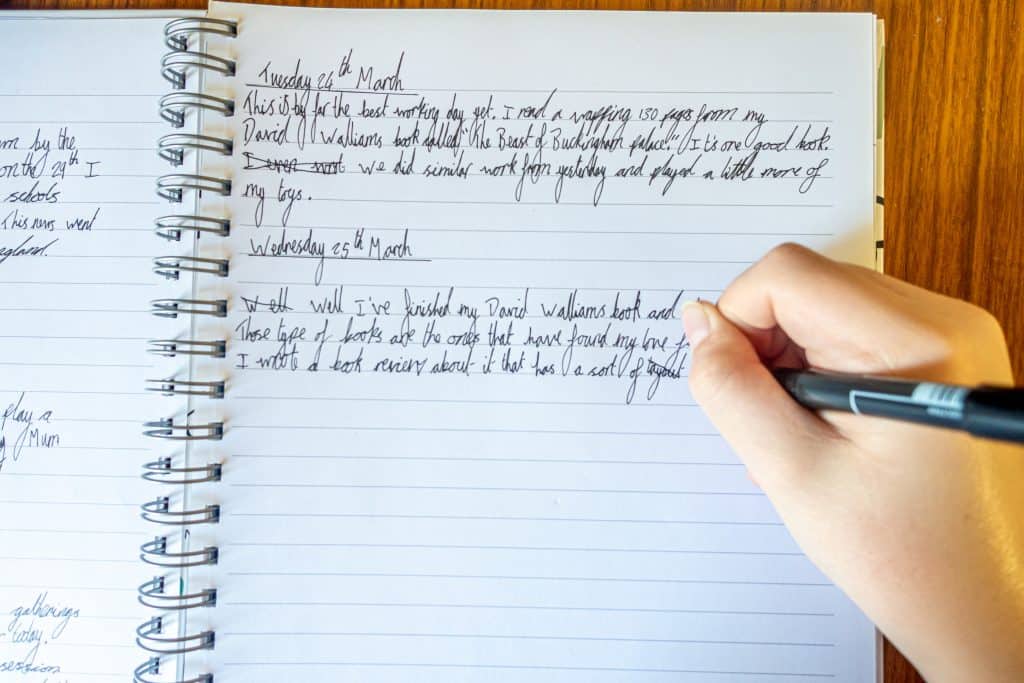 rn by the
on the 29th I
schools
This news went
ngland.
play a
Mum
gatherings
today.
session
Tuesday 24th March
This is by far the best working day yet. I read a wapping 130 pages from my
David Walliams book called "The Beast of Buckingham palace." It's one good book.
I even wont we did similar work from yesterday and played a little more of
my toys.
Wednesday 25th March
Well Well I've finished my David Walliams book and
Those type of books are the ones that have found my love f
I wrote a book review about it that has a sort of layout